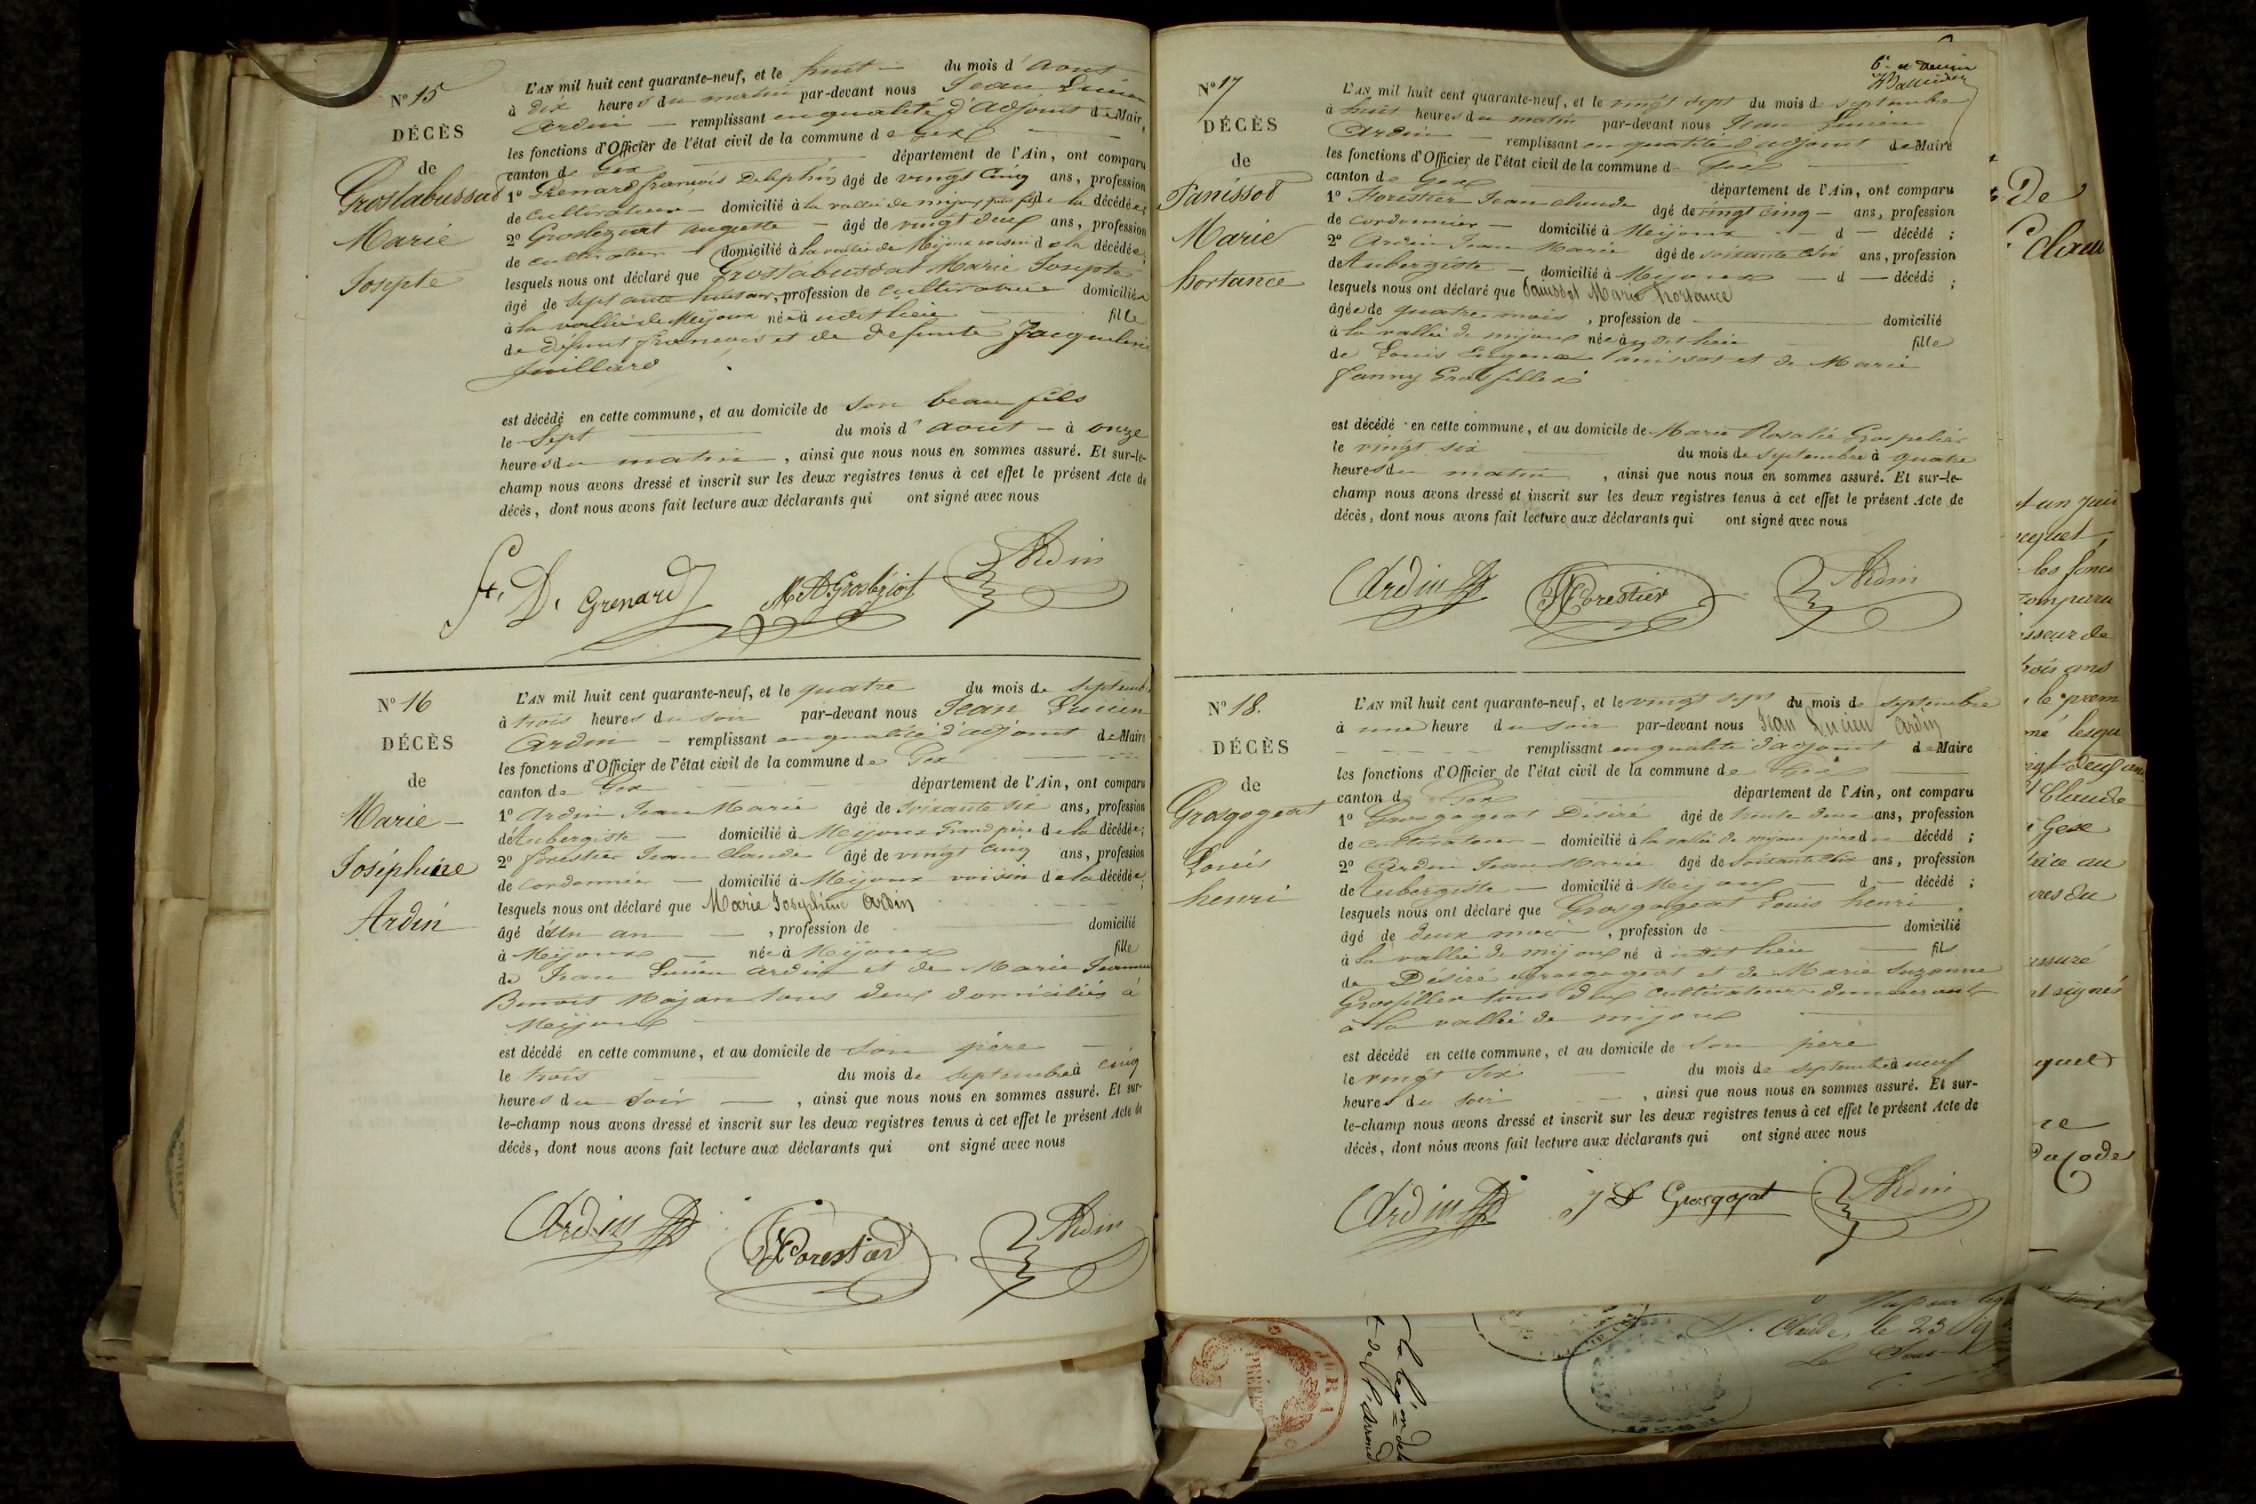 N° 15
DÉCÈS
de
Grostabussiat
Marie
Josepte
L'AN mil huit cent quarante-neuf, et le huit du mois d'Aout
à dix heures du matin par-devant nous Jean Lucien
Ardin — remplissant en qualité d'adjoint de Maire,
les fonctions d'Officier de l'état civil de la commune de Gex
canton de Gex département de l'Ain, ont comparu
1° Grenard françois Delphin âgé de vingt Cinq ans, profession
de Cultivateur — domicilié à la vallée de mijoux de la décédée;
2° Grosgeziat Auguste — âgé de vingt deux ans, profession
de cultivateur — domicilié à la vallée de Mijoux voisin de la décédée;
lesquels nous ont déclaré que Grostabussiat Marie Josepte
âgé de Septante huit ans, profession de Cultivatrice domiciliée
à la vallée de Mijoux née à udit lieu fille
de défunt françois et de defunte Jacqueline
Juillard
est décédé en cette commune, et au domicile de son beau fils
le Sept du mois d'aout — à onze
heures du matin, ainsi que nous nous en sommes assuré. Et sur-le-
champ nous avons dressé et inscrit sur les deux registres tenus à cet effet le présent Acte de
décès, dont nous avons fait lecture aux déclarants qui ont signé avec nous
f. D. Grenard Ardin
N° 16
DÉCÈS
de
Marie —
Joséphine
Ardin
L'AN mil huit cent quarante-neuf, et le quatre du mois de Septemb
à trois heures du soir par-devant nous Jean Lucien
Ardin — remplissant en qualité d'adjoint de Maire
les fonctions d'Officier de l'état civil de la commune de Gex
canton de Gex département de l'Ain, ont comparu
1° Ardin Jean Marie âgé de soixante six ans, profession
d'Aubergiste — domicilié à Mijoux Grand père de la décédée;
2° forestier Jean Claude âgé de vingt cinq ans, profession
de cordonnier — domicilié à Mijoux voisin de la décédée;
lesquels nous ont déclaré que Marie Josephine Ardin
âgé d'un an —, profession de — domicilié
à Mijoux — née à Mijoux fille
de Jean Lucien Ardin et de Marie Jeanne
Benoit tous deux domiciliés à
Mijoux
est décédé en cette commune, et au domicile de son père —
le trois du mois de septembre à cinq
heures du soir —, ainsi que nous nous en sommes assuré. Et sur-
le-champ nous avons dressé et inscrit sur les deux registres tenus à cet effet le présent Acte de
décès, dont nous avons fait lecture aux déclarants qui ont signé avec nous
Ardin Forestier Ardin
N° 17
DÉCÈS
de
Panissod
Marie
hortance
L'AN mil huit cent quarante-neuf, et le vingt sept du mois de septembre
à huit heures du matin par-devant nous Jean Lucien
Ardin — remplissant en qualité d'adjoint de Maire
les fonctions d'Officier de l'état civil de la commune de Gex
canton de Gex département de l'Ain, ont comparu
1° Forestier Jean claude âgé de vingt cinq — ans, profession
de cordonnier — domicilié à Mijoux — d — décédé;
2° Ardin Jean Marie âgé de soixante six ans, profession
d'Aubergiste — domicilié à Mijoux — d — décédé;
lesquels nous ont déclaré que Panissot Marie hortance
âgée de quatre mois, profession de — domicilié
à la vallée de mijoux née à udit lieu fille
de Louis Eugene Panissot et de Marie
fanny Grosfillex
est décédé en cette commune, et au domicile de Marie Rosalie
le vingt six du mois de septembre à quatre
heures du matin, ainsi que nous nous en sommes assuré. Et sur-le-
champ nous avons dressé et inscrit sur les deux registres tenus à cet effet le présent Acte de
décès, dont nous avons fait lecture aux déclarants qui ont signé avec nous
Ardin Forestier Ardin
N° 18.
DÉCÈS
de
Grosgogeat
Louis
henri
L'AN mil huit cent quarante-neuf, et le vingt sept du mois de septembre
à une heure du soir par-devant nous Jean Lucien Ardin
remplissant en qualité d'adjoint de Maire
les fonctions d'Officier de l'état civil de la commune de Gex —
canton de Gex département de l'Ain, ont comparu
1° Grosgogeat Désiré âgé de trente deux ans, profession
de cultivateur — domicilié à la vallée de mijoux père du décédé;
2° Ardin Jean Marie âgé de soixante six ans, profession
d'Aubergiste — domicilié à Mijoux — d — décédé;
lesquels nous ont déclaré que Grosgogeat Louis henri
âgé de deux mois, profession de — domicilié
à la vallée de mijoux né à udit lieu — fils
de Désiré Grosgogeat et de Marie Suzanne
Grosfillex tous deux cultivateurs demeurant
à la vallée de mijoux
est décédé en cette commune, et au domicile de son père
le vingt six du mois de septembre à neuf
heures du soir, ainsi que nous nous en sommes assuré. Et sur-
le-champ nous avons dressé et inscrit sur les deux registres tenus à cet effet le présent Acte de
décès, dont nous avons fait lecture aux déclarants qui ont signé avec nous
Ardin Grosgojat Ardin